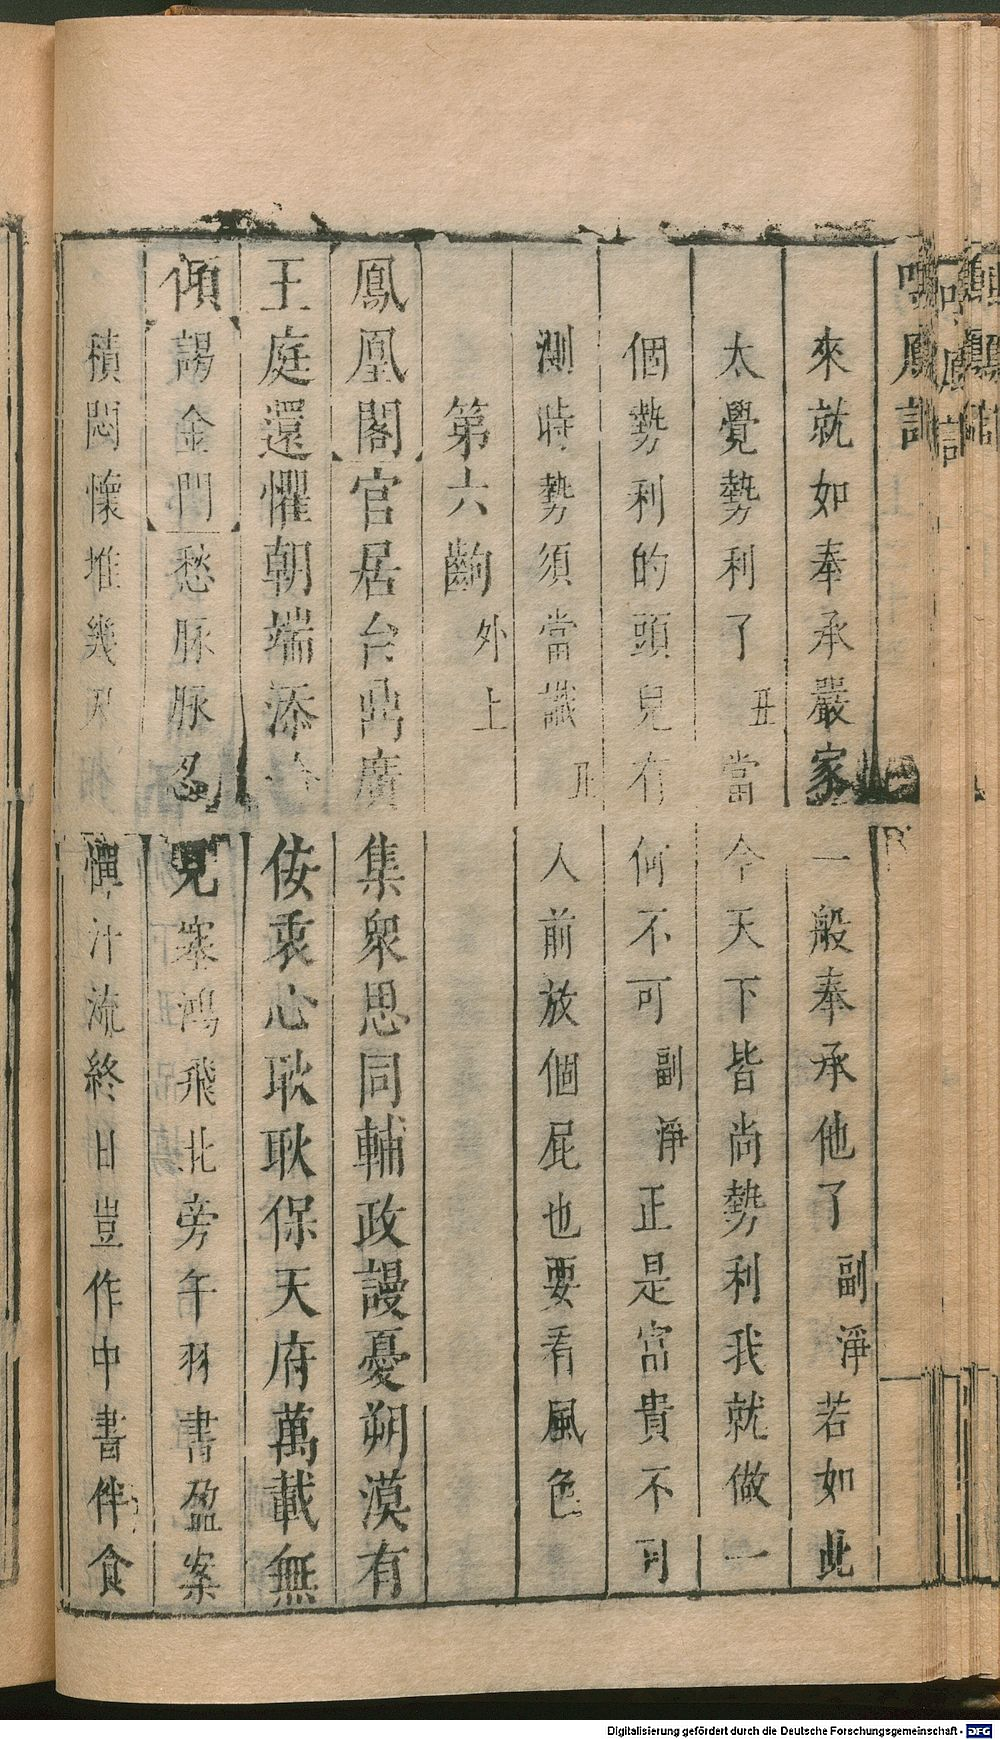 鳴鳳記
來就如奉承嚴家一般奉承他了副淨若如此
太覺勢利了丑當今天下皆尚勢利我就做一
個勢利的頭兒有何不可副淨正是富貴不可
測時勢須當識丑人前放個屁也要看風色
第六齣外上
鳳凰閣官居台鼎廣集衆思同輔政謾憂朔漠有
王庭還懼朝端添佞衷心耿耿保天府萬載無
傾謁金門愁脉脉忍見塞鴻飛北旁午羽書盈案
積悶懷堆幾憚汁流終日豈作中書伴食
Digitalisierung gefördert durch die Deutsche Forschungsgemeinschaft - DFG